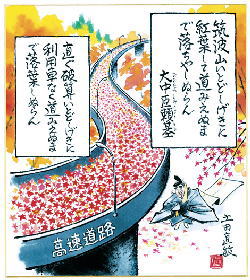 筑波山いとどしげきに
紅葉して道みえぬま
で落ちやしぬらん
大中臣頼基
直ぐ破算いとどしげきに
利用車なく道みえぬま
で落葉しぬらん
高速道路